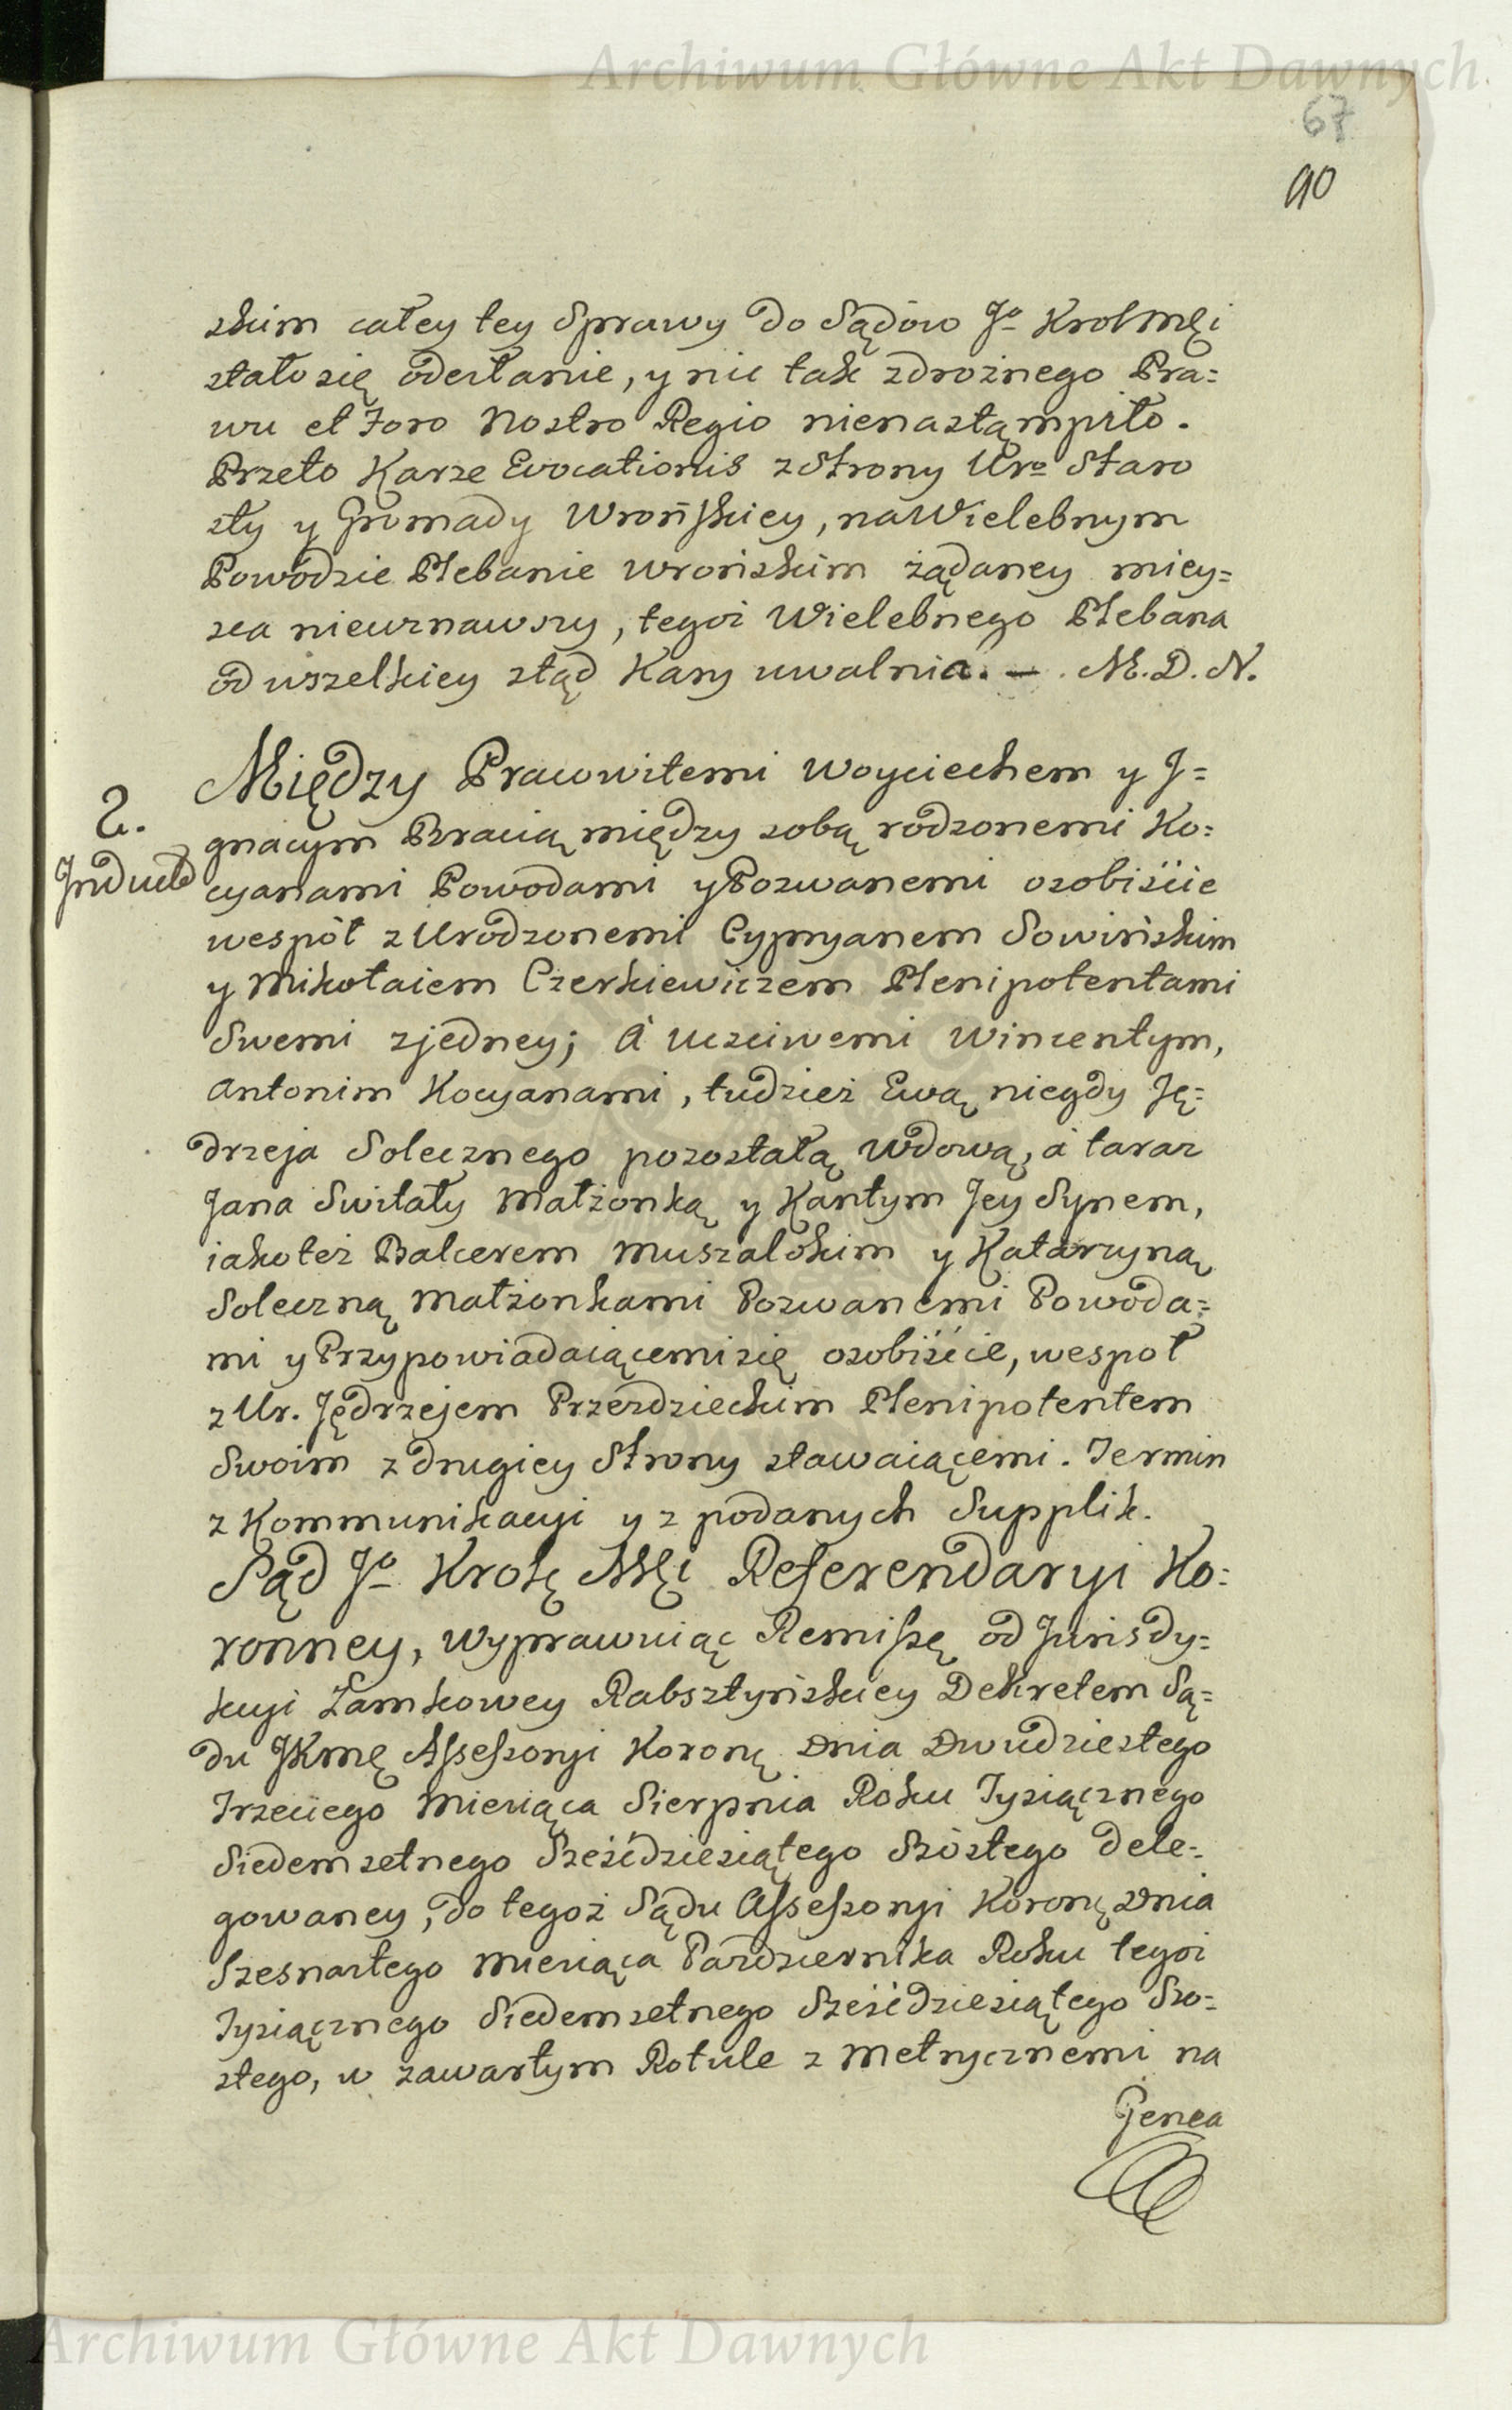 Archiwum Główne Akt Dawnych
67
90
skim całey tey Sprawy do Sądow Jo Krolmći
stało się odesłanie, y nic tak zdrożnego Pra=
wu et Foro Nostro Regio nienastąmpiło.
Przeto Karze Evocationis z Strony Uro Staro
sty y Gromady Wrońskiey, na Wielebnym
Powodzie Plebanie Wrońskim żądaney miey=
sca nieuznawszy, tegoż Wielebnego Plebana
od wszelkiey ztąd Kary uwalnia. — . M.D.N.
Między Pracowitemi Woyciechem y J=
2.
gnacym Bracią między sobą rodzonemi Ko=
Inducta
cyanami Powodami y Pozwanemi osobiście
wespół z Urodzonemi Cypryanem Sowińskim
y Mikołaiem Czerkiewiczem Plenipotentami
Swemi z jedney; A Uczciwemi Wincentym,
Antonim Kocyanami, tudzież Ewą niegdy Ję=
drzeja Solecznego pozostałą Wdową, á taraz
Jana Switały Małżonką y Kantym Jey Synem,
iakoteż Balcerem Muszalskim y Katarzyną
Soleczną Małżonkami Pozwanemi Powoda=
mi y Przypowiadaiącemi się osobiście, wespoł
z Ur. Jędrzejem Przezdzieckim Plenipotentem
Swoim z drugiey Strony stawaiącemi. Termin
z Kommunikacyi y z podanych Supplik.
Sąd Jo Krolę Mći Referendaryi Ko=
ronney, wyprawuiąc Remissę od Jurisdy=
kcyi Zamkowey Rabsztyńskiey Dekretem Są=
du JKmę Assessoryi Koronę Dnia Dwudziestego
Trzeciego Miesiąca Sierpnia Roku Tysiącznego
Siedemsetnego Sześćdziesiątego Szóstego dele=
gowaney, do tegoż Sądu Assessoryi Koronę Dnia
Szesnastego Miesiąca Pazdziernika Roku tegoż
Tysiącznego Siedemsetnego Sześćdziesiątego Szo=
stego, w zawartym Rotule z Metrycznemi na
Genea
Archiwum Główne Akt Dawnych